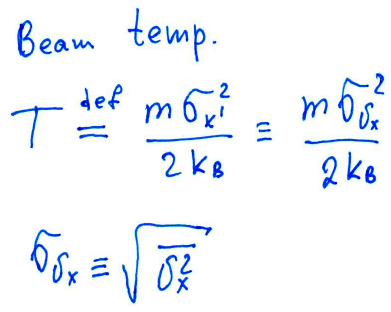 Beam temp.
T \stackrel{def}{=} \frac{m σ_{x'}^2}{2 k_B} ≡ \frac{m σ_{δ_x}^2}{2 k_B}
σ_{δ_x} ≡ \sqrt{\overline{δ_x^2}}